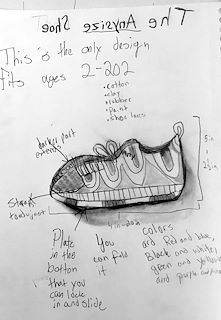 The Anysize Shoe
This is the only design
fits ages 2-202
.cotton
.clay
.rubber
.paint
.shoe laces
darker part
extends
5in
Plate
in the
bottom
that you
can lock
in and slide
You
can find
it
colors
are Red and blue,
Black and white,
green and yellow
and purple and